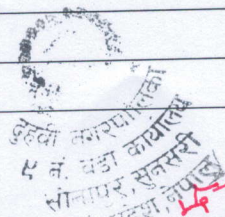 दुहवी नगरपालिका
५ नं. वडा कार्यालय
सोनापुर, सुनसरी
प्रदेश, नेपाल